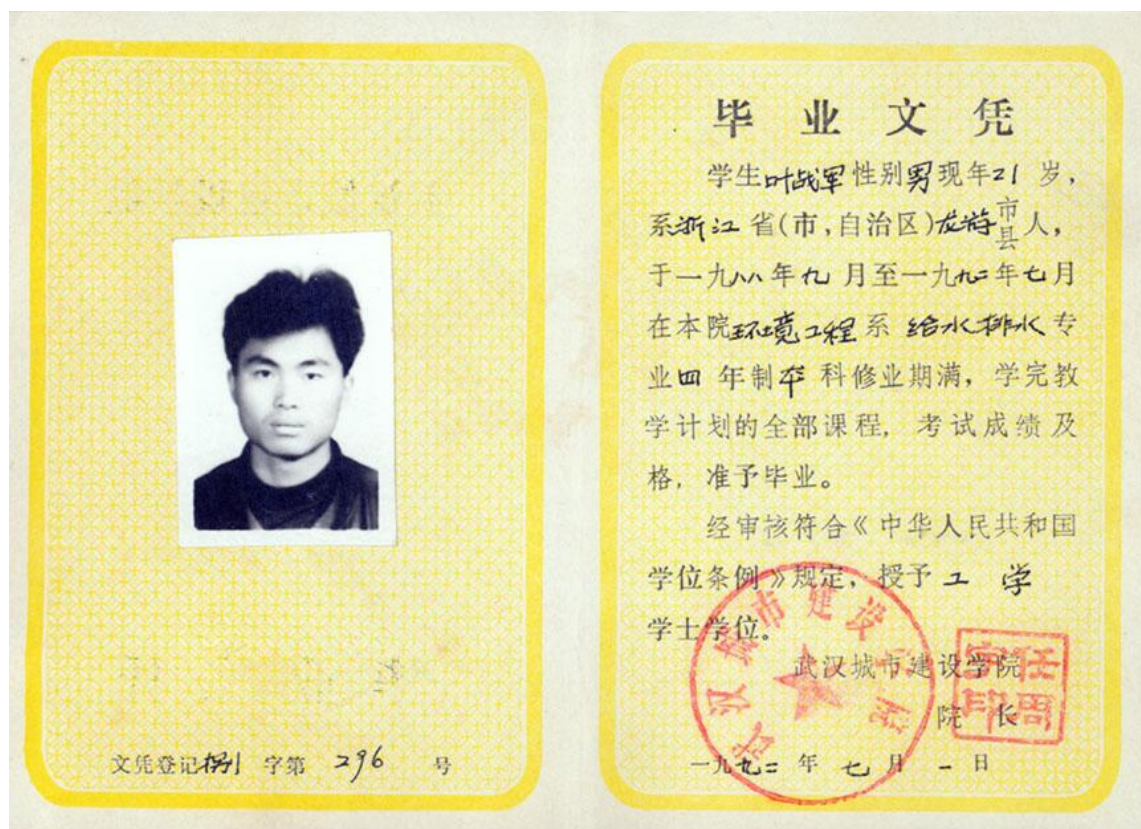 文凭登记捌字第 296 号
毕业文凭
学生叶战军性别男现年21岁，
系浙江省(市,自治区)龙游市县人，
于一九八八年九月至一九九二年七月
在本院环境工程系给水排水专
业四年制本科修业期满，学完教
学计划的全部课程，考试成绩及
格，准予毕业。
经审核符合《中华人民共和国
学位条例》规定，授予工学
学士学位。
武汉城市建设学院
院长
一九九二年七月一日
武汉城市建设学院